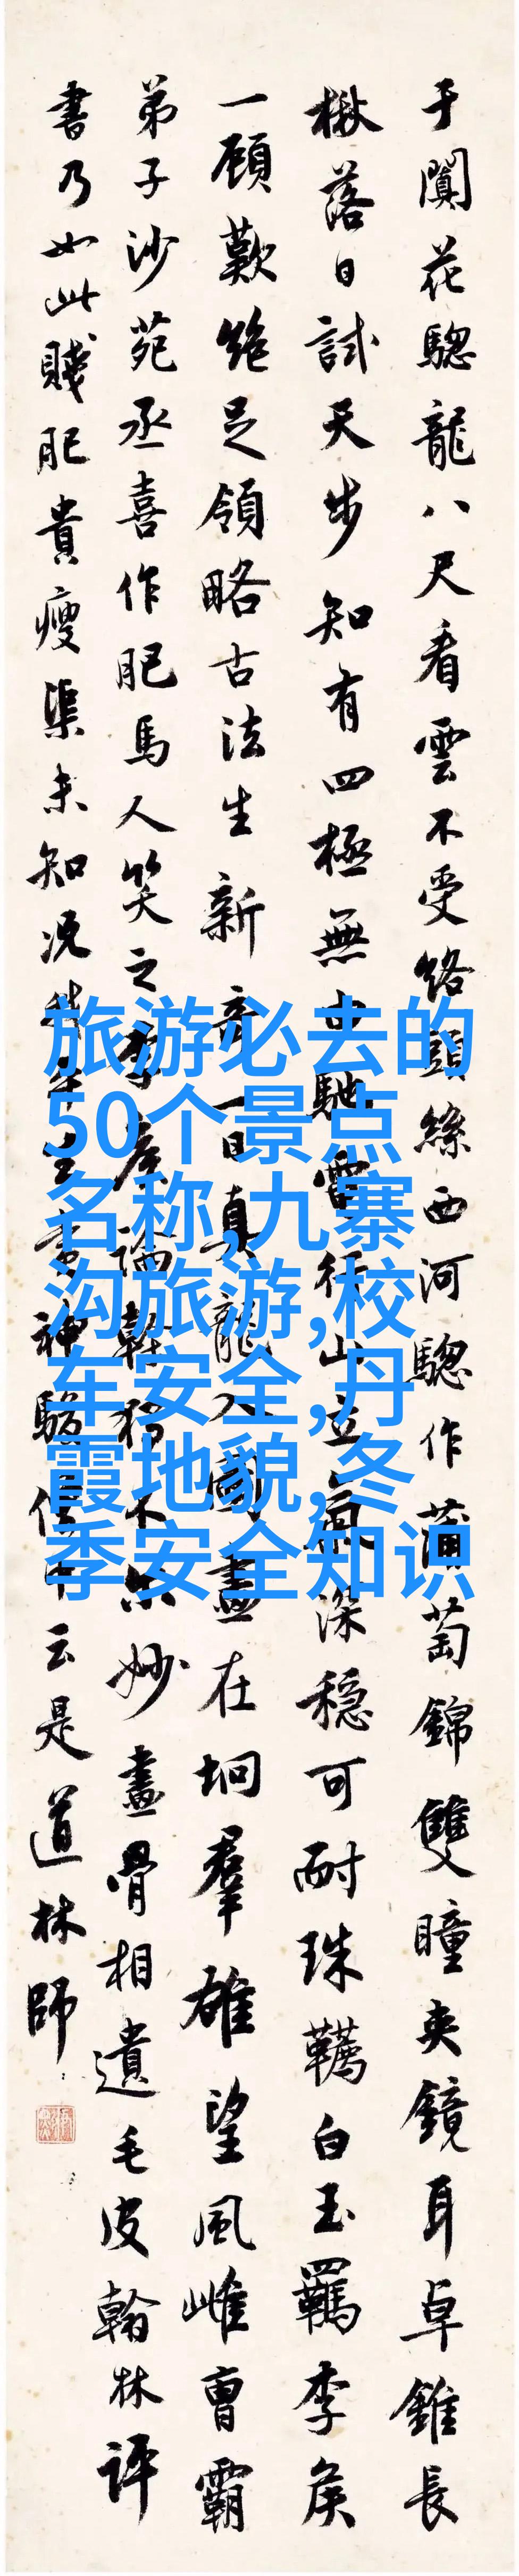 于闐花驄龍八尺看雲不受絡頭絲西河驄作蒲萄錦雙瞳夾鏡耳卓錐長
楸落日試天步知有四極無由馳電行山立氣深穩可耐珠韉白玉羈李侯
一顧歎絕足領略古法生新奇一日真龍入圖畫在坰羣雄望風雌曹霸
弟子沙苑丞喜作肥馬人笑之李侯論幹獨不尔妙畫骨相遺毛皮翰林評
書乃如此賤肥貴瘦渠未知況我平生賞神駿僧中云是道林師
旅游必去的
50个景点
名称,九寨
沟旅游,校
车安全,丹
霞地貌,冬
季安全知识